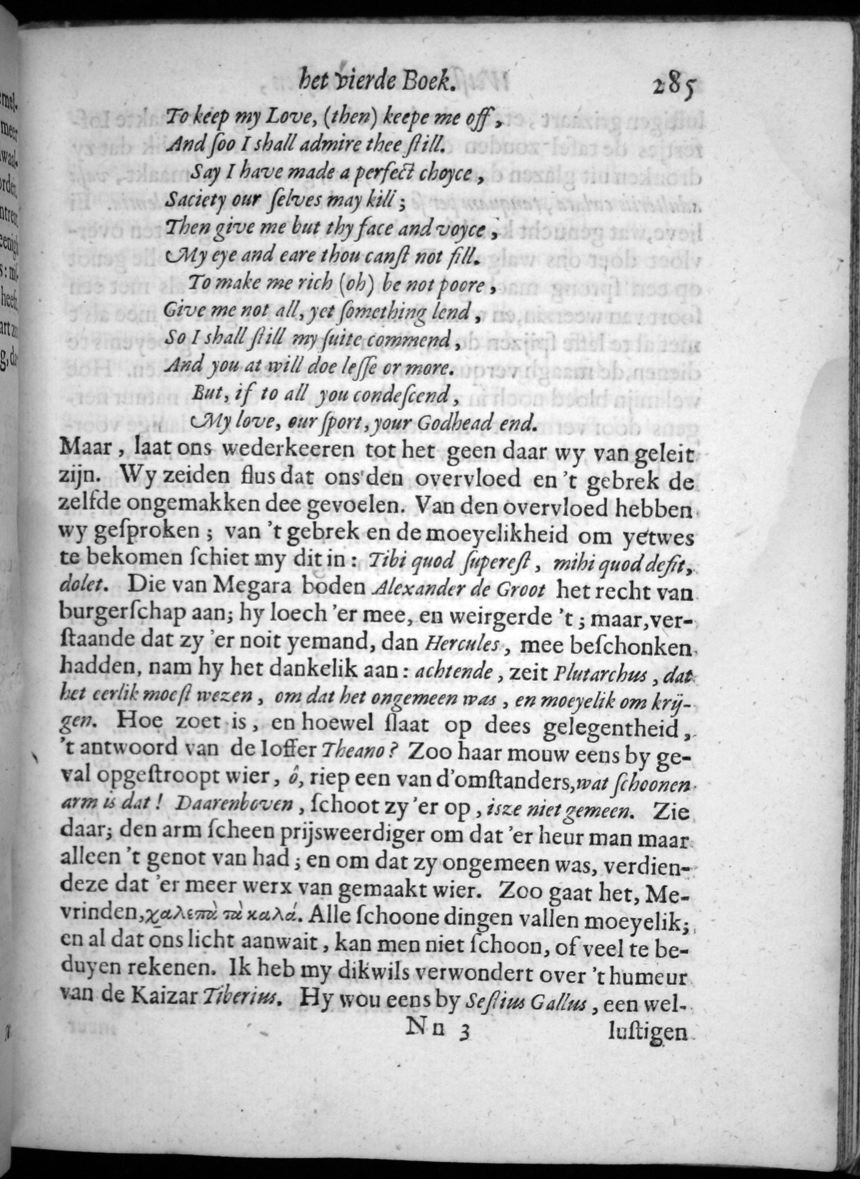 het vierde Boek. 285
To keep my Love, (then) keepe me off,
And ſoo I shall admire thee ſtill.
Say I have made a perfect choyce,
Saciety our ſelves may kill;
Then give me but thy face and voyce,
My eye and eare thou canſt not fill.
To make me rich (oh) be not poore,
Give me not all, yet ſomething lend,
So I shall ſtill my ſuite commend,
And you at will doe leſſe or more.
But, if to all you condeſcend,
My love, our ſport, your Godhead end.
Maar, laat ons wederkeeren tot het geen daar wy van geleit
zijn. Wy zeiden flus dat ons den overvloed en 't gebrek de
zelfde ongemakken dee gevoelen. Van den overvloed hebben
wy geſproken; van 't gebrek en de moeyelikheid om yetwes
te bekomen ſchiet my dit in: Tibi quod ſupereſt, mihi quod deſit,
dolet. Die van Megara boden Alexander de Groot het recht van
burgerſchap aan; hy loech 'er mee, en weirgerde 't; maar, ver-
ſtaande dat zy 'er noit yemand, dan Hercules, mee beſchonken
hadden, nam hy het dankelik aan: achtende, zeit Plutarchus, dat
het eerlik moeſt wezen, om dat het ongemeen was, en moeyelik om krij-
gen. Hoe zoet is, en hoewel ſlaat op dees gelegentheid,
't antwoord van de Ioffer Theano? Zoo haar mouw eens by ge-
val opgeſtroopt wier, ô, riep een van d'omſtanders, wat ſchoonen
arm is dat! Daarenboven, ſchoot zy 'er op, isze niet gemeen. Zie
daar; den arm ſcheen prijsweerdiger om dat 'er heur man maar
alleen 't genot van had; en om dat zy ongemeen was, verdien-
deze dat 'er meer werx van gemaakt wier. Zoo gaat het, Me-
vrinden, χαλεπὰ τὰ καλά. Alle ſchoone dingen vallen moeyelik;
en al dat ons licht aanwait, kan men niet ſchoon, of veel te be-
duyen rekenen. Ik heb my dikwils verwondert over 't humeur
van de Kaizar Tiberius. Hy wou eens by Seſtius Gallus, een wel-
Nn 3 luſtigen